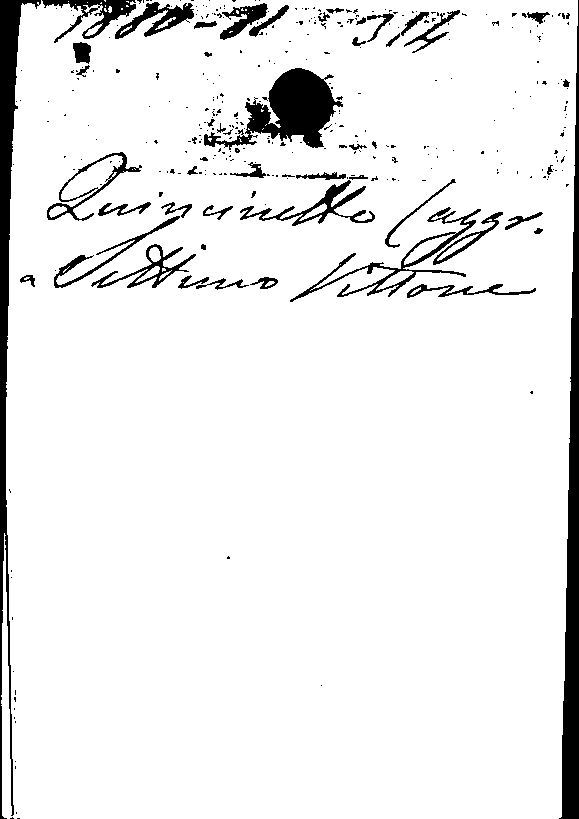 1880-81 314
Quincinetto (aggr.
a Settimo Vittone